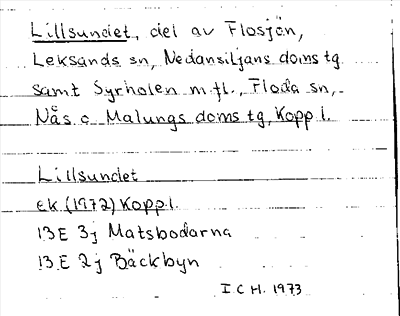 Lillsundet, del av Flosjön,
Leksands sn, Nedansiljans doms tg
samt Syrholen m.fl., Floda sn,
Nås o Malungs doms tg, Kopp l.
Lillsundet
ek. (1972) Kopp l.
13E 3j Matsbodarna
13E 2j Bäckbyn
ICH. 1973